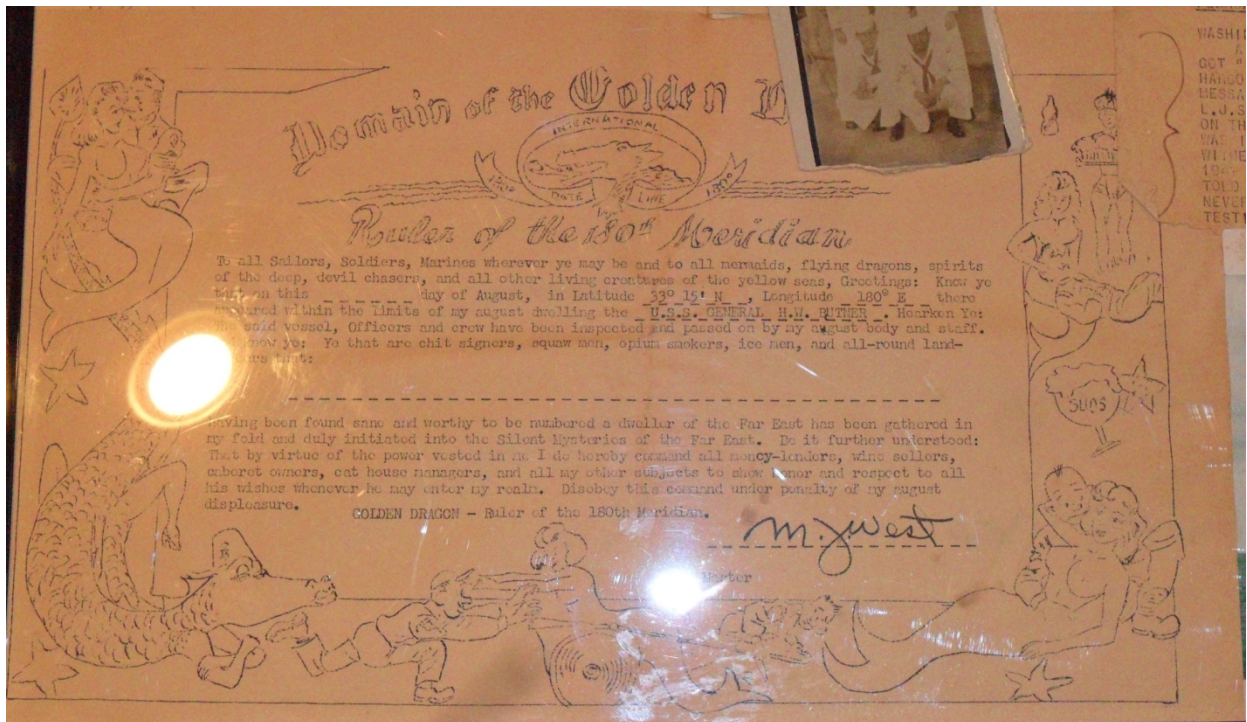 Domain of the Golden D
INTERNATIONAL
180° DATE LINE 180°
Ruler of the 180th Meridian
To all Sailors, Soldiers, Marines wherever ye may be and to all mermaids, flying dragons, spirits
of the deep, devil chasers, and all other living creatures of the yellow seas, Greetings: Know ye
that on this _ _ _ _ _ _ _ day of August, in Latitude 33° 15' N , Longitude 180° E there
appeared within the limits of my august dwelling the U.S.S. GENERAL H.W. BUTNER . Hearken Ye:
The said vessel, Officers and crew have been inspected and passed on by my august body and staff.
know ye: Ye that are chit signers, squaw men, opium smokers, ice men, and all-round land-
that:
Having been found sane and worthy to be numbered a dweller of the Far East has been gathered in
my fold and duly initiated into the Silent Mysteries of the Far East. Be it further understood:
That by virtue of the power vested in me I do hereby command all money-lenders, wine sellers,
cabaret owners, cat house managers, and all my other subjects to show honor and respect to all
his wishes whenever he may enter my realm. Disobey this command under penalty of my august
displeasure.
GOLDEN DRAGON - Ruler of the 180th Meridian.
M.J. West
Master
SUDS
WASHI
A
GOT "
MESSA
L.J.S
ON TH
WAS I
WITNE
194
TOLD
NEVER
TEST